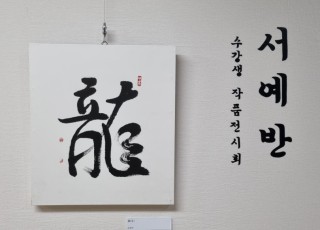 龍
서예반
수강생 작품전시회